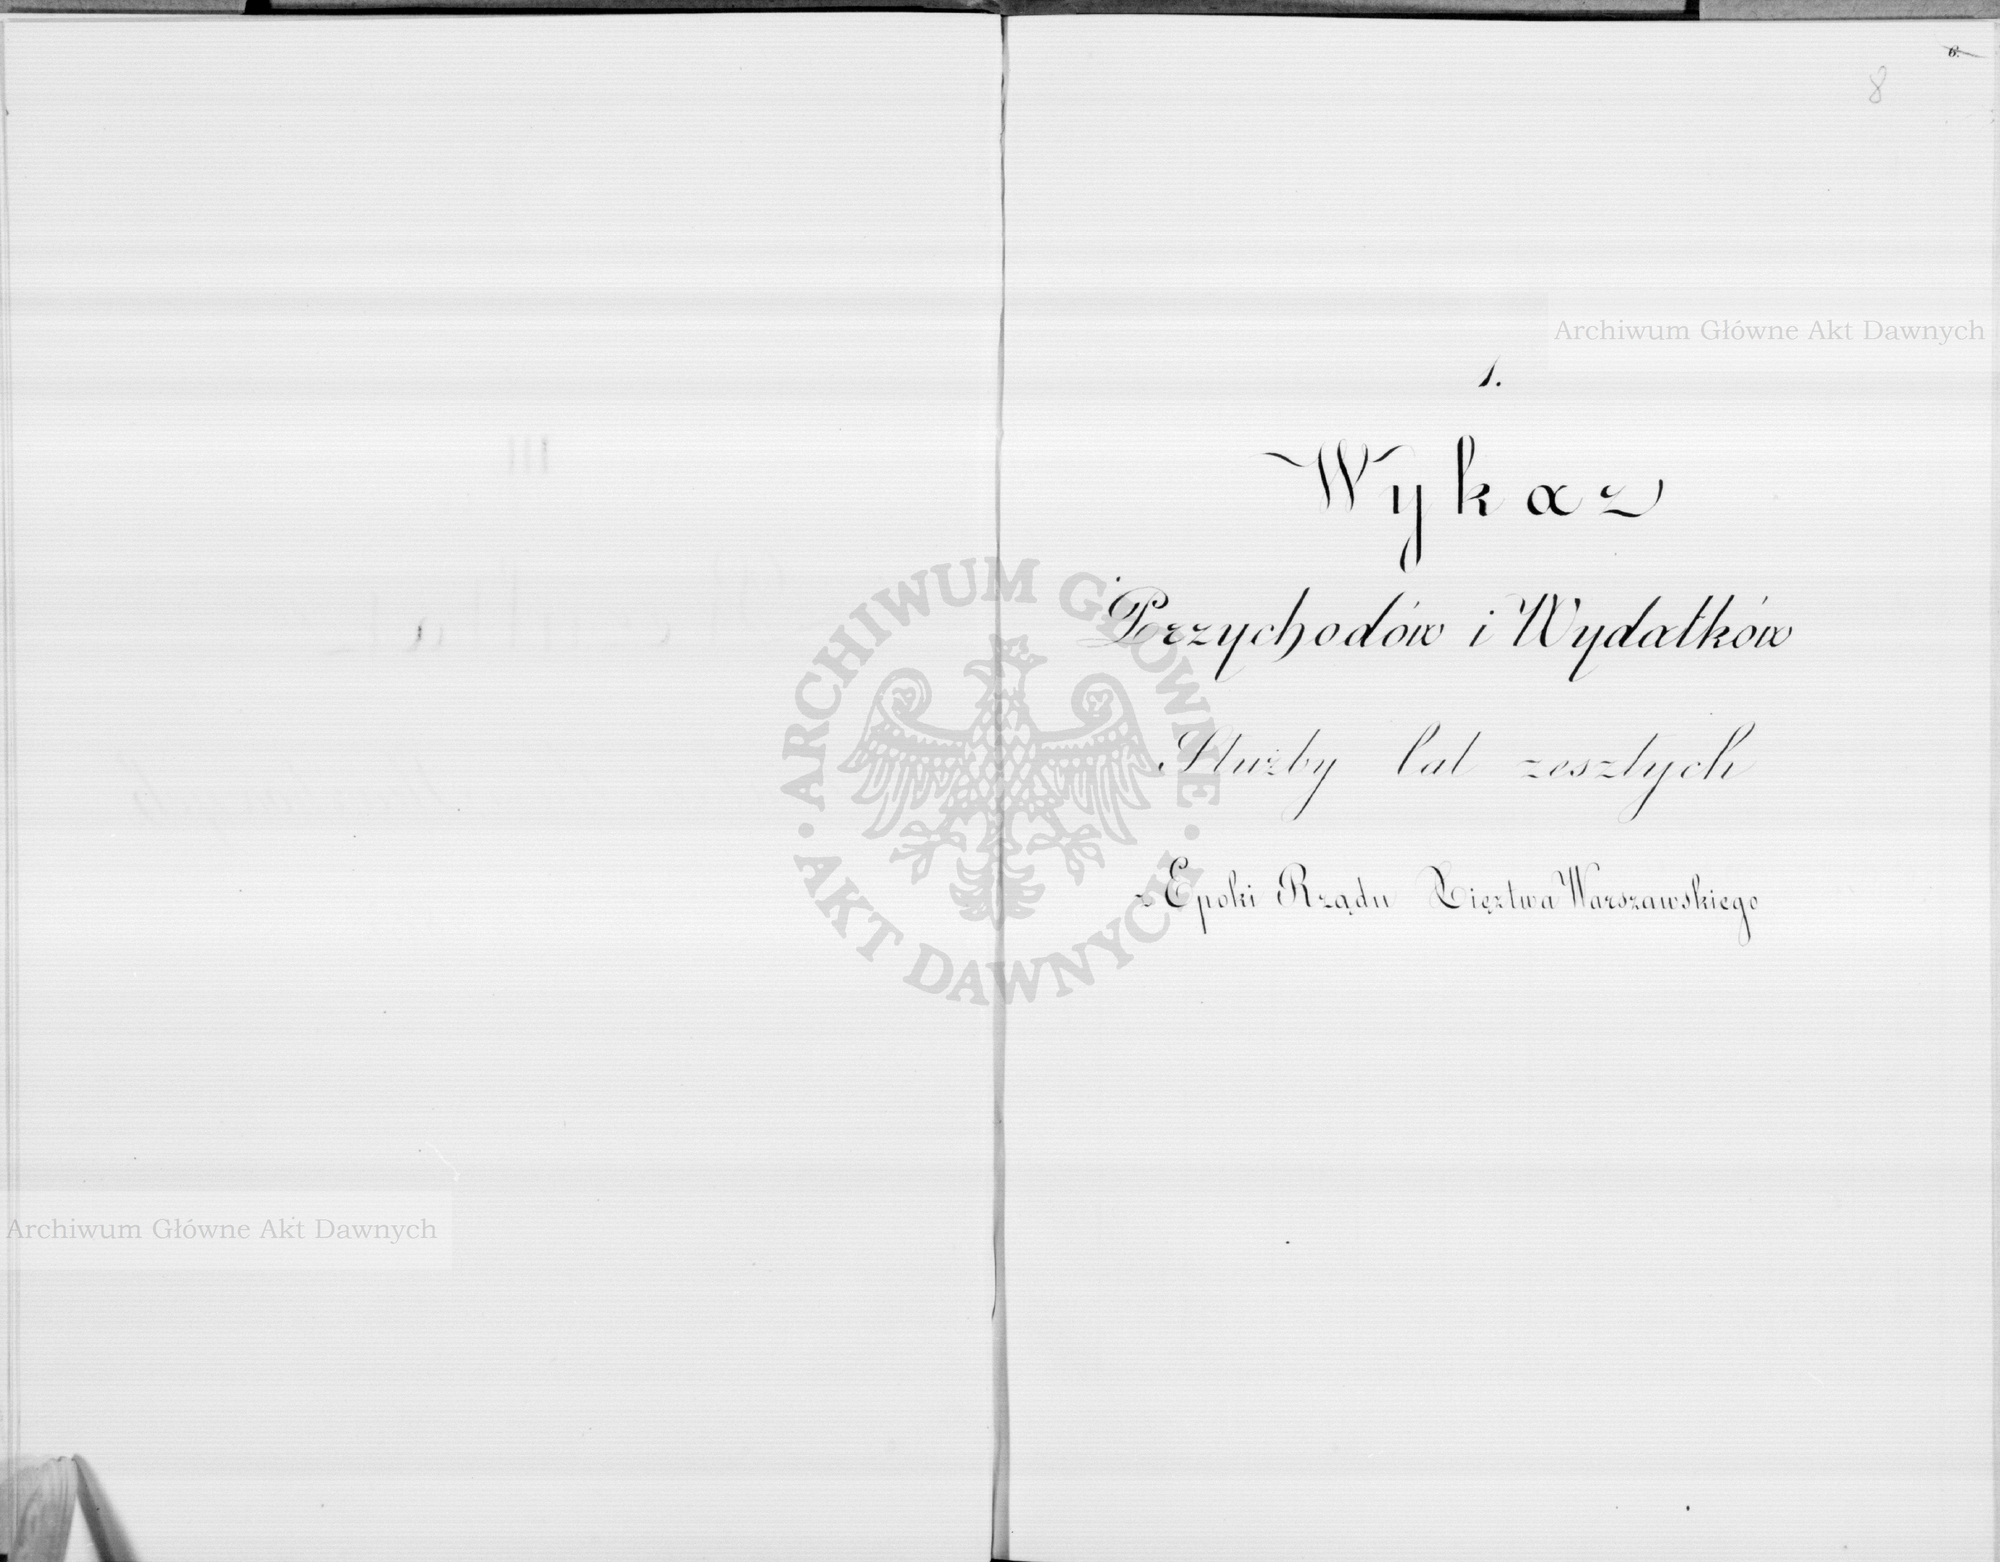 6.
8
Archiwum Główne Akt Dawnych
1.
Wykaz
Przychodów i Wydatków
Służby lat zeszłych
z Epoki Rządu Xięztwa Warszawskiego
ARCHIWUM GŁÓWNE • AKT DAWNYCH •
Archiwum Główne Akt Dawnych